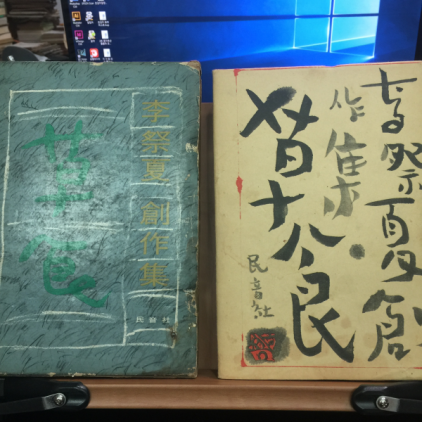 李祭夏 創作集
草食
民音社
李祭夏創
作集
草食
民音社